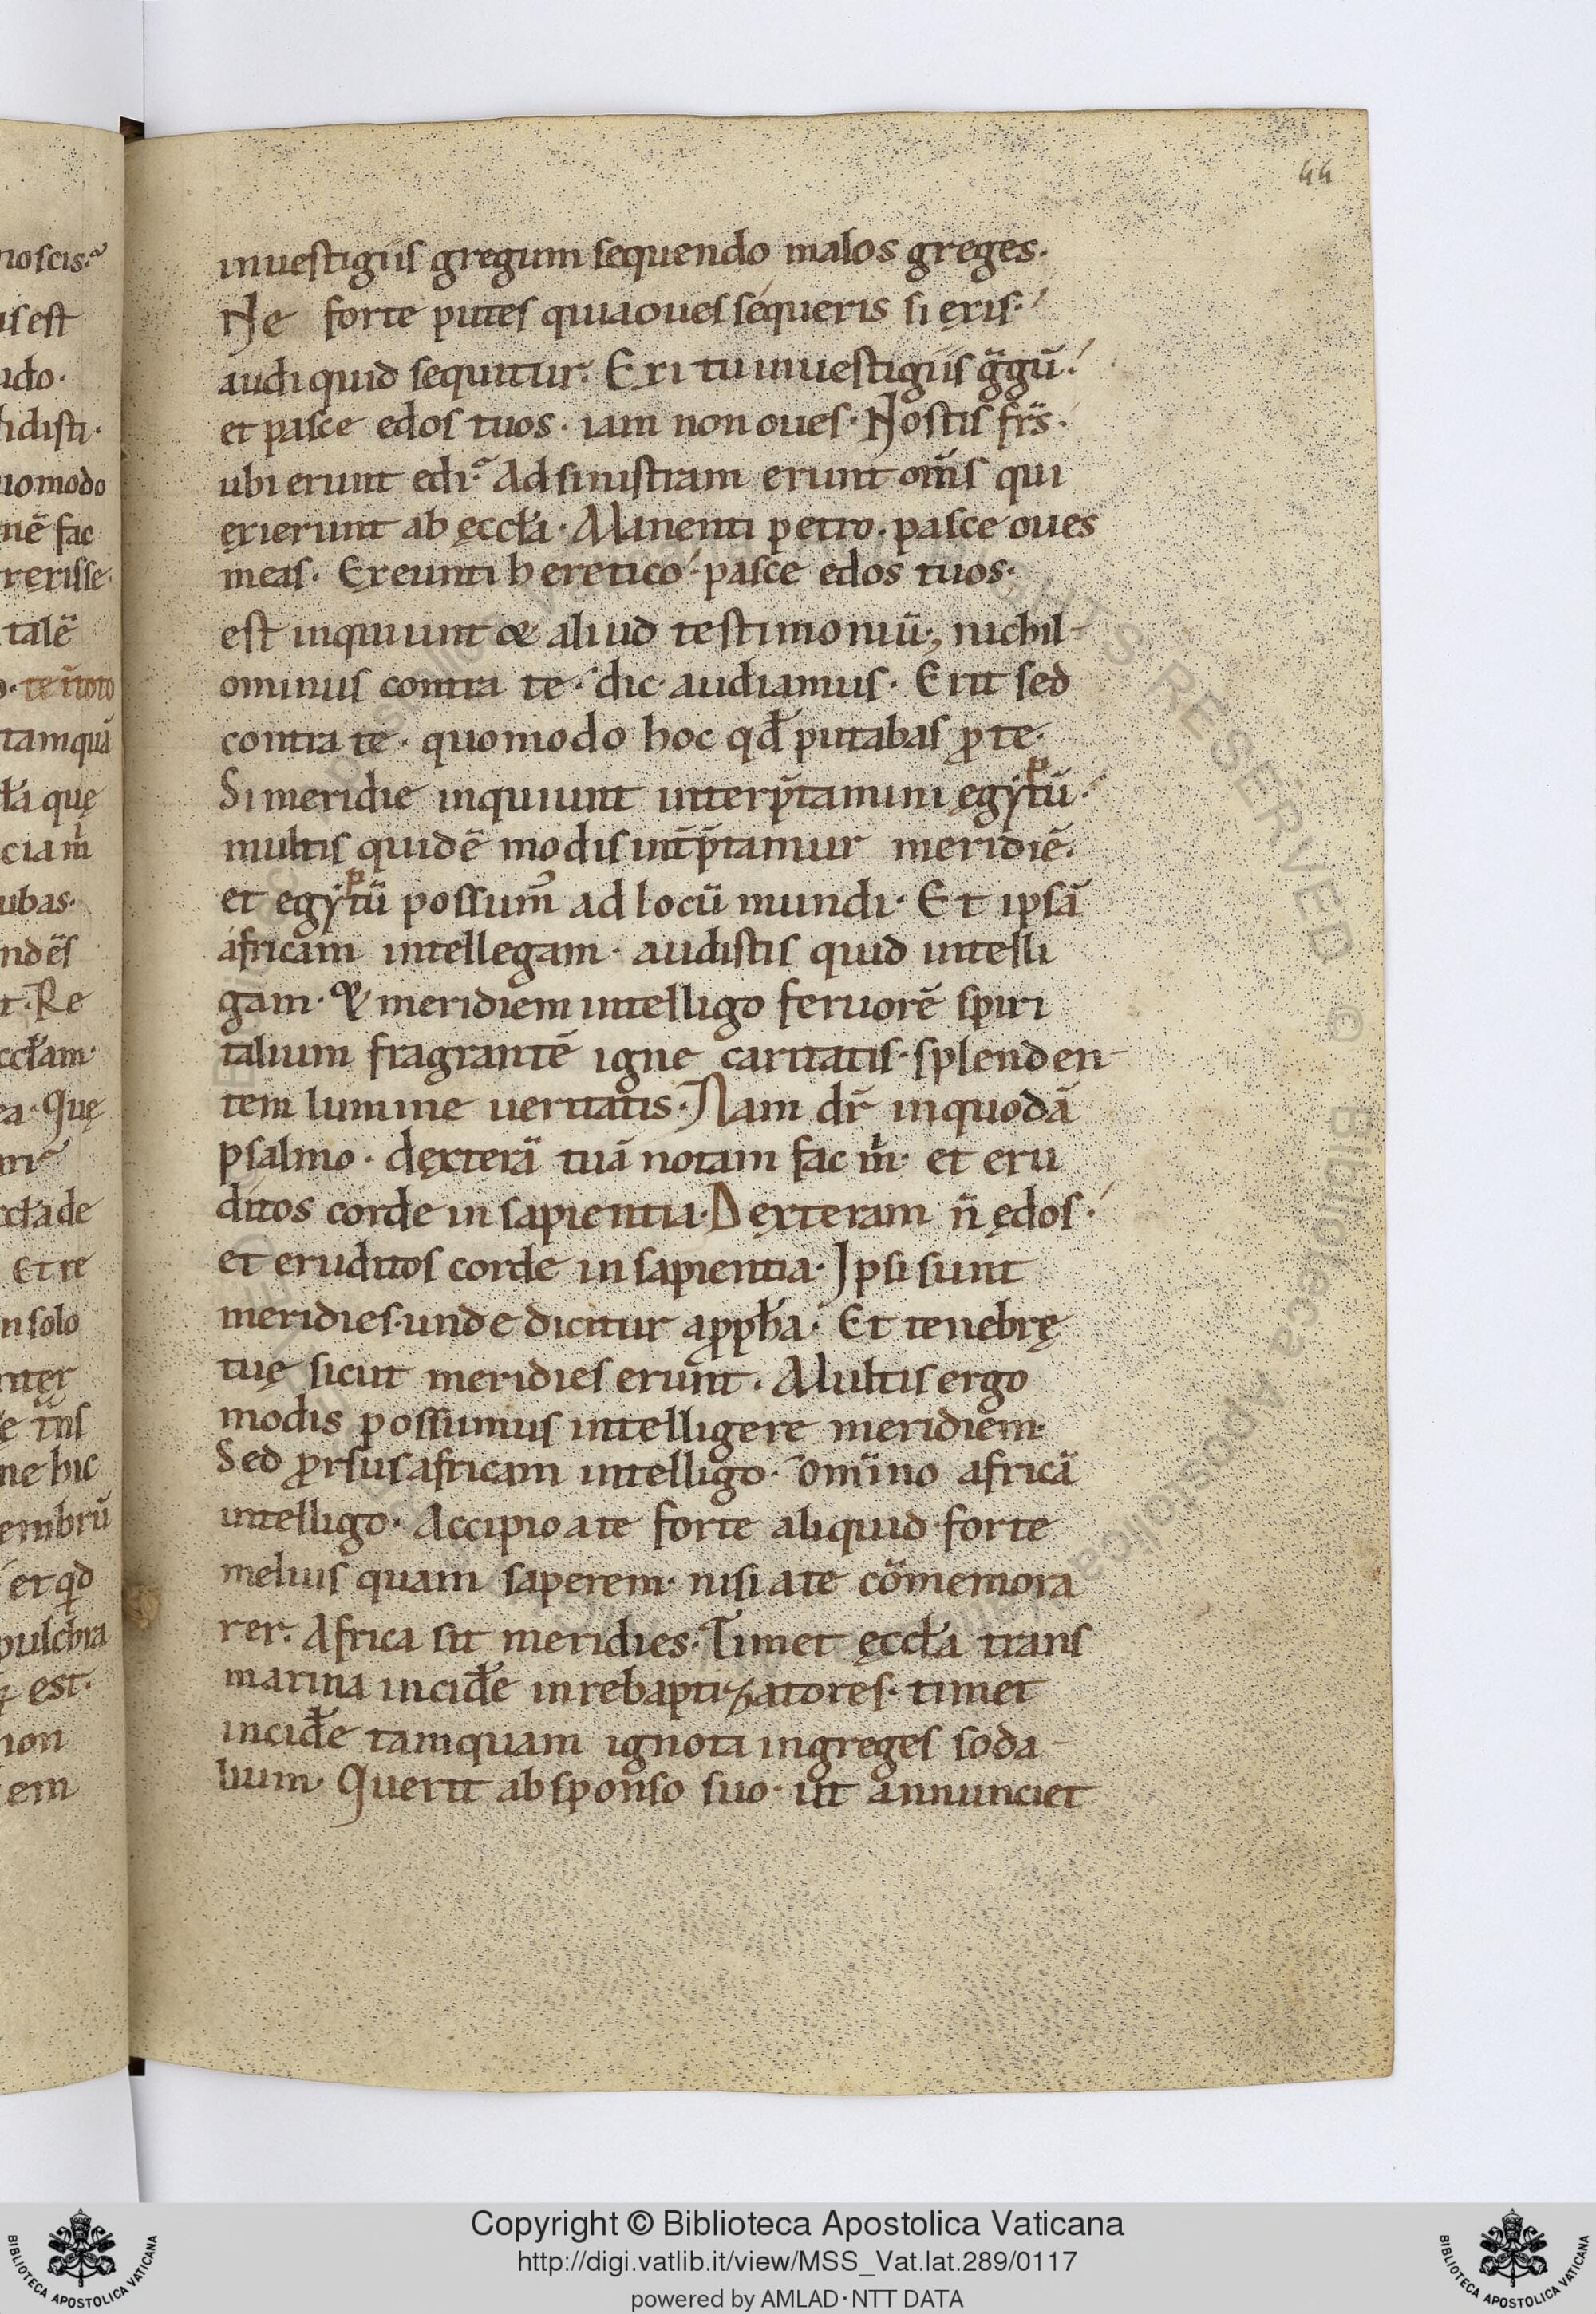 44
noscis.
is est
ido.
didisti.
uomodo
nē fac
rexisse.
talē
tamquā
cła quę
ciam
ubas.
t. Re
ccłam.
a. Quę
ccła de
Et re
n solo
ne hic
embrū
et qd
pulchra
est.
non
em
inuestigiis gregum sequendo malos greges.
Ne forte putes quia oues sequeris si exis.
audi quid sequitur. Exi tu inuestigiis ggū.
et pasce edos tuos. iam non oues. Nostis frs.
ubi erunt edi. Ad sinistram erunt oms qui
exierunt ab ęccła. Manenti petro. pasce oues
meas. Exeunti heretico. pasce edos tuos.
est inquiunt & aliud testimoniū. nichil-
ominus contra te. dic. audiamus. Erit sed
contra te. quomodo hoc qđ putabas p te.
Si meridie inquiunt interptamini ęgyptū.
multis quidē modis intptamur meridiē.
et egyptū possum ad locū mundi. Et ipsā
africam intellegam. audistis quid intelli
gam. & meridiem intelligo feruorē spiri
talium fragrantē igne caritatis. splenden-
tem lumine ueritatis. Nam dr inquodā
psalmo. dęxterā tuā notam fac m. et eru
ditos corde in sapientia. Dęxteram n̄ ędos.
et eruditos corde in sapientia. Ipsi sunt
meridies. unde dicitur apppħa. Et tenebrę
tuę sicut meridies erunt. Multis ergo
modis possumus intelligere meridiem.
Sed prsus africam intelligo. Omino africā
intelligo. Accipio a te forte aliquid. forte
melius quam saperem. nisi a te cōmemora
rer. Africa sit meridies. Timet ęccła trans
marina inciđe in rebaptizatores. timet
inciđe tamquam ignota ingreges soda-
lium. Querit ab sponso suo. ut annunciet
Copyright © Biblioteca Apostolica Vaticana
http://digi.vatlib.it/view/MSS_Vat.lat.289/0117
powered by AMLAD·NTT DATA
BIBLIOTECA APOSTOLICA VATICANA
BIBLIOTECA APOSTOLICA VATICANA